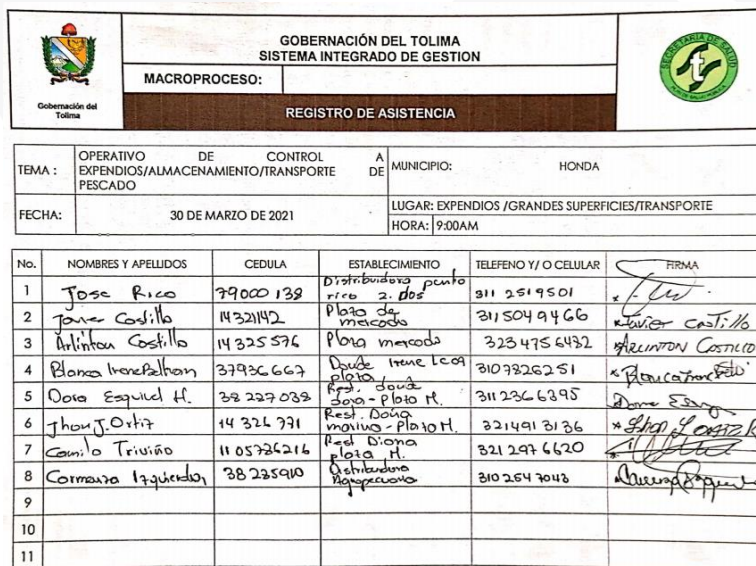 Gobernación del
Tolima
GOBERNACIÓN DEL TOLIMA
SISTEMA INTEGRADO DE GESTION
MACROPROCESO:
REGISTRO DE ASISTENCIA
SECRETARIA DE SALUD
TEMA : OPERATIVO DE CONTROL A
EXPENDIOS/ALMACENAMIENTO/TRANSPORTE DE
PESCADO
MUNICIPIO: HONDA
FECHA: 30 DE MARZO DE 2021
LUGAR: EXPENDIOS /GRANDES SUPERFICIES/TRANSPORTE
HORA: 9:00AM
No. NOMBRES Y APELLIDOS CEDULA ESTABLECIMIENTO TELEFENO Y/ O CELULAR FIRMA
1 Jose Rico 79000138 Distribuidora punto
rico 2. dos 311 2519501
2 Javier Castillo 14321142 Plaza de
mercado 3115049466 Javier CasTillo
3 Arlinton Castillo 14325576 Plaza mercado 3234756432 ARLINTON CASTILLO
4 Blanca Irene Beltran 37936667 Donde Irene
plaza 3107826251 Blanca Irene
5 Dora Esquivel H. 38227038 Rest. doña
dora - Plaza M. 3112366395
6 Jhon J. Ortiz 14326771 Rest. Doña
marina - Plaza M. 3214913136 Jhon J ORTIZ R
7 Camilo Triviño 1105736216 Rest Diana
plaza M. 321 297 6620
8 Carmenza Izquierdo 38235910 Distribuidora
Agropecuaria 3102547043
9
10
11